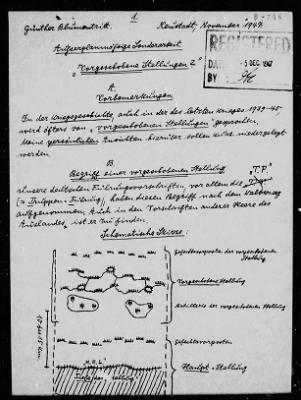 1.
B-786
Günther Blumentritt.
Neustadt, November 1947
Außerplanmäßige Sonderarbeit
"Vorgeschobene Stellungen"
REGISTERED
DATE 5 DEC 1947
BY
A.
Vorbemerkungen
In der Kriegsgeschichte, auch in der des letzten Krieges 1939-45,
wird öfters von "vorgeschobenen Stellungen" gesprochen.
Meine persönlichen Ansichten hierüber sollen kurz niedergelegt
werden.
B.
Begriff einer vorgeschobenen Stellung
"T.F."
Unsere deutschen Führungsvorschriften, vor allem die
(= Truppen-Führung), haben diesen Begriff nach dem Weltkrieg
aufgenommen. Auch in den Vorschriften anderer Heere des
Auslandes ist er zu finden.
Schematische Skizze:
Gefechtsvorposten der vorgeschobenen
Stellung
Vorgeschobene Stellung
Artillerie der vorgeschobenen Stellung
Gefechtsvorposten
H.K.L.
Haupt-Stellung